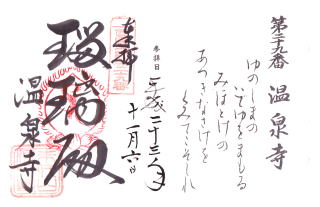 第二十九番　温泉寺
ゆのしまの
いでゆをまもる
みほとけの
あつきなさけを
くみてこそしれ
参拝日
平成二十三年
十一月六日
奉拝
瑠璃殿
温泉寺